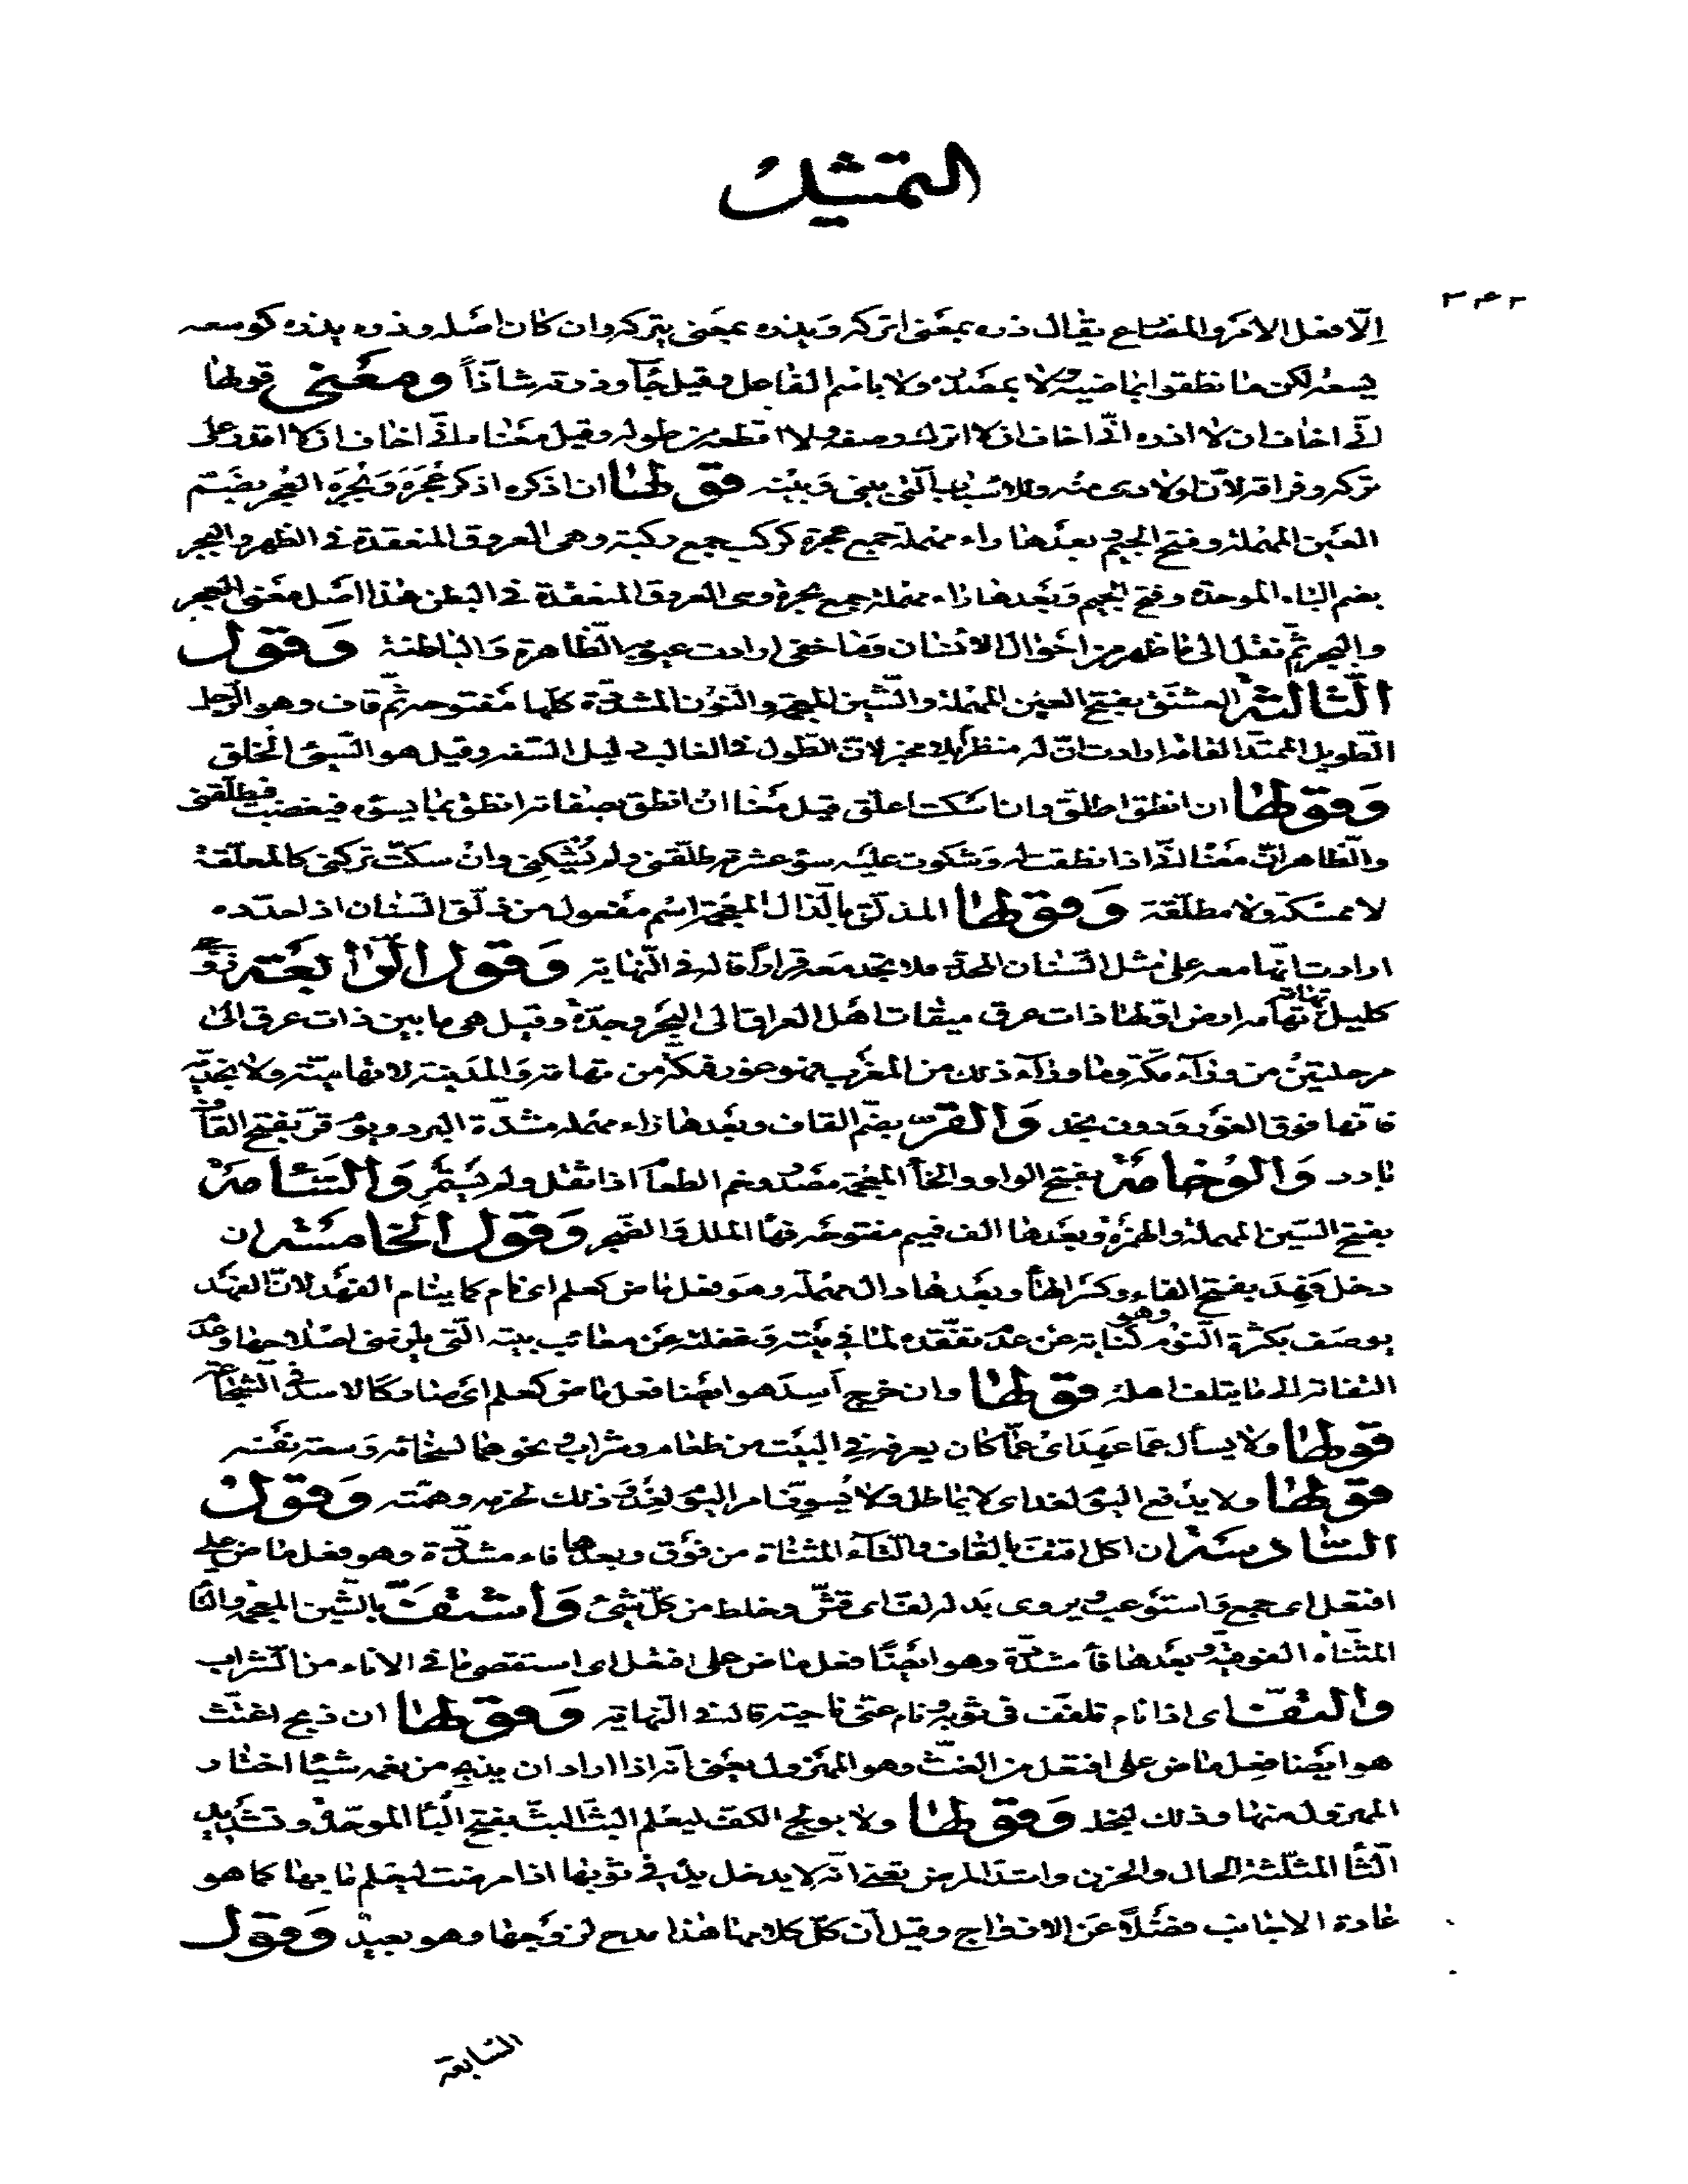 التمثيل
٣٤٢
إلّا فعل الامر والمضارع يقال ذره بمعنى اتركه ويذره بمعنى يتركه وان كان اصله وذره يذره كوسعه
يسعه لكن ما نطقوا بماضيه ولا بمصدره ولا باسم الفاعل وقيل جآء وذرته شاذّاً ومعنى قولها
انّى اخاف ان لا اذره انّى اخاف ان لا اترك وصفه ولا اقطعه من طوله وقيل معناه انّى اخاف ان لا اقدر على
تركه وفراقه لانّ اولادى منه وللاسباب الّتى بينى وبينه وقولها ان اذكره اذكر عجره وبجره العجر بضم
العين المهملة وفتح الجيم وبعدها راء مهملة جمع عجرة كركب جمع ركبة وهى العروق المنعقدة فى الظهر والبجر
بضم الباء الموحدة وفتح الجيم وبعدها راء مهملة جمع بجرة وهى العروق المنعقدة فى البطن هذا اصل معنى العجر
والبجر ثمّ نقل الى ما ظهر من احوال الانسان وما خفى ارادت عيوبه الظّاهرة والباطنة وقول
الثالثة العشنّق بفتح العين المهملة والشّين المعجمة والنّون المشدّدة كلّها مفتوحة ثمّ قاف وهو الرّجل
الطّويل الممتدّ القامة ارادت انّ له منظراً بلا مخبر لانّ الطّول فى الغالب دليل السّفه وقيل هو السّيّئ الخلق
وقولها ان انطق اطلّق وان اسكت اعلّق قيل معناه ان انطق بصفاته انطق بما يسوءه فيغضب فيطلّقنى
والظّاهر انّ معناه انّى اذا نطقت له وشكوت عليه سوء عشرته طلّقنى ولم يُشكِنى وان سكتّ تركنى كالمعلّقة
لا ممسكة ولا مطلّقة وقولها المذلّق بالذّال المعجمة اسم مفعول من ذلّق السّنان اذا حدّده
ارادت انّها معه على مثل السّنان المحدّد فلا تجد معه قراراً قاله فى النّهاية وقول الرّابعة زوجى
كليل تهامة تهامة ارض اوّلها ذات عرق ميقات اهل العراق الى البحر وجدّة وقيل هى ما بين ذات عرق الى
مرحلتين من وراء مكّة وما وراء ذلك من المغرب فهو غور فمكّة من تهامة والمدينة لا تهاميّة ولا نجديّة
فانّها فوق الغور ودون نجد والقرّ بضمّ القاف وبعدها راء مهملة مشدّدة البرد ويوم قرّ بفتح القاف
بارد والوخامة بفتح الواو والخاء المعجمة مصدر وخم الطعام اذا ثقل ولم يستمر والسّآمة
بفتح السّين المهملة والهمزة وبعدها الف فميم مفتوحة فهاء الملل والضّجر وقول الخامسة ان
دخل فهد بفتح الفاء وكسر الهاء وبعدها دال مهملة وهو فعل ماض كعلم اى نام كما ينام الفهد لانّ الفهد
يوصف بكثرة النّوم وهو كناية عن عدم تفقّده لما فى بيته وغفلته عن معائب بيته الّتى يلزمنى اصلاحها وعدم
التفاته الى ما يتلف اهله وقولها وان خرج أسد هو ايضا فعل ماض كعلم اى صار كالاسد فى الشّجاعة
قولها ولا يسأل عمّا عهد اى عمّا كان يعرفه فى البيت من طعام وشراب ونحوهما لسخائه وسعة نفسه
وقولها ولا يدفع اليوم لغد اى لا يماطل ولا يسوّف امر اليوم لغد وذلك لحزمه وهمّته وقول
السّادسة ان اكل اقتفّ بالقاف والتّاء المثنّاة من فوق وبعدها فاء مشدّدة وهو فعل ماض على
افتعل اى جمع واستوعب ويروى بدله لفّ اى قشّ وخلط من كلّ شئ واشتفّ بالشّين المعجمة والتّاء
المثنّاة الفوقيّة وبعدها فاء مشدّدة وهو ايضاً فعل ماض على افتعل اى استقصى ما فى الاناء من الشّراب
والتفّ اى اذا نام تلفّف فى ثوبه ونام عنّى ناحية قاله فى النّهاية وقولها ان ذبح اغتثّ
هو ايضا فعل ماض على افتعل من الغثّ وهو المهزول يعنى انّه اذا اراد ان يذبح من نعمه شيئا اختار
المهزول منها وذلك لبخله وقولها ولا يولج الكفّ ليعلم البثّ البثّ بفتح الباء الموحّدة وتشديد
الثّاء المثلّثة الحال والحزن واشتداد المرض تعنى انّه لا يدخل يده فى ثوبها اذا مرضت ليعلم ما بها كما هو
عادة الاجانب فضلاً عن الازواج وقيل انّ كلّ كلامها هذا مدح لزوجها وهو بعيد وقول
السّابعة